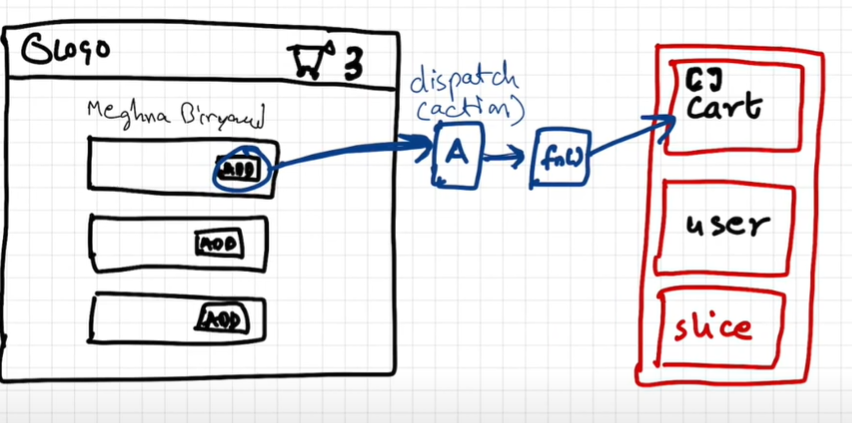 Logo
3
Meghna Biryani
ADD
ADD
ADD
dispatch
(action)
A
fn()
[]
cart
user
slice